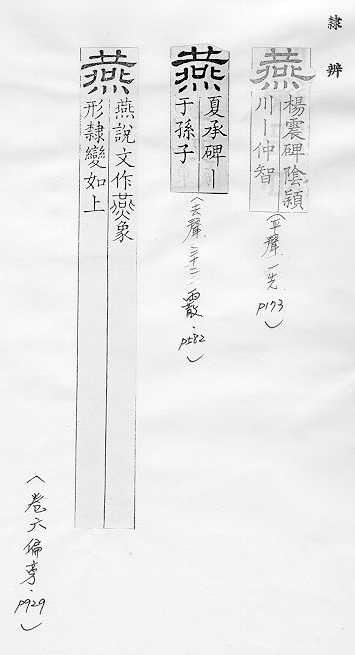 隸辨
燕
楊震碑陰潁
川丨仲智
（平聲．一先．p173）
燕
夏承碑丨
于孫子
（去聲．三十二．霰．p582）
燕
燕說文作燕象
形隸變如上
（卷六偏旁．p929）